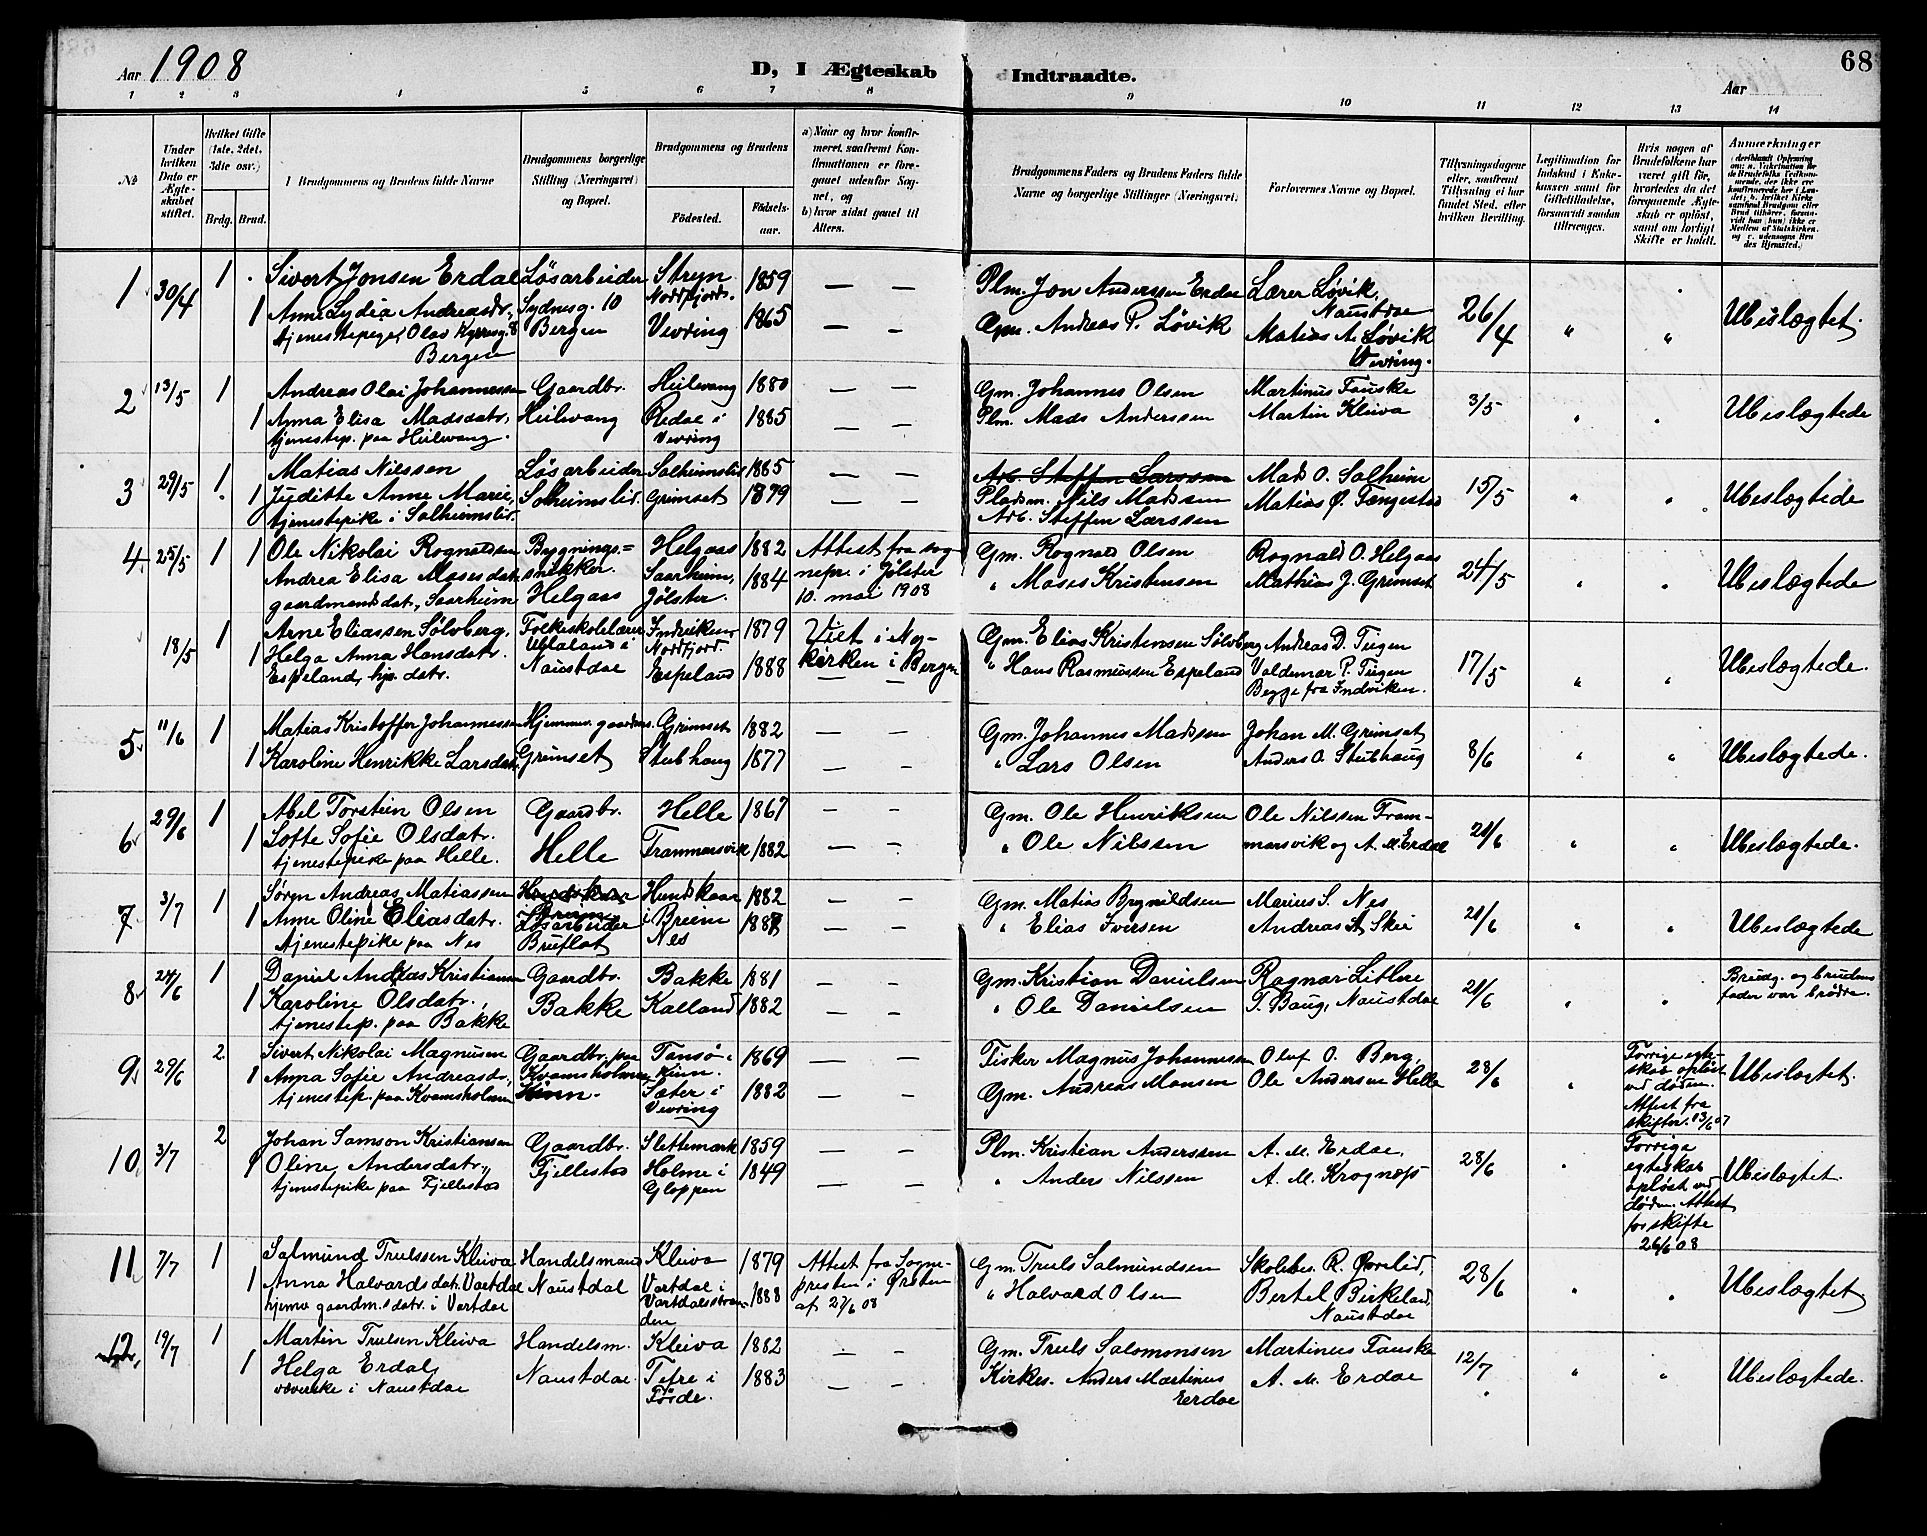 Aar 1908
D, I Ægteskab Indtraadte.
68
Aar
1 2 3 4 5 6 7 8 9 10 11 12 13 14
No
Under hvilken Dato er Ægteskabet stiftet.
Hvilket Gifte (1ste, 2det, 3die osv.)
Brdg. Brud.
Brudgommens og Brudens fulde Navne
Brudgommens borgerlige Stilling (Næringsvei) og Bopæl.
Brudgommens og Brudens
Födested.
Födselsaar.
a) Naar og hvor konfirmeret, saafremt Konfirmationen er foregaaet udenfor Sognet, og
b) hvor sidst gaaet til Alters.
Brudgommens Faders og Brudens Faders fulde Navne og borgerlige Stillinger (Næringsvei.)
Forlovernes Navne og Bopæl.
Tillysningsdagene eller, saafremt Tillysning ei har fundet Sted, efter hvilken Bevilling.
Legitimation for Indskud i Enkekassen samt for Giftetilladelse, forsaavidt saadan tiltrænges.
Hvis nogen af Brudefolkene har været gift før, hvorledes da det foregaaende Ægteskab er opløst, samt om lovligt Skifte er holdt.
Anmærkninger
1 30/4 1 Sivert Jonsen Erdal Løsarbeider Stryn 1859 — — Plm. Jon Anderssen Erdal Lærer Løvik, 26/4
Nordfjord. Naustdal
1 Anne Lydia Andreasdr, Sydnesg. 10 Vevring 1865 — — Gm. Andreas P. Løvik Matias A. Løvik " " Ubeslægtet.
tjenestepige, Olav Kyrresg. 8 Bergen Vevring.
Bergen
2 13/5 1 Andreas Olai Johannessen Gaardbr. Heilevang 1880 — — Gm. Johannes Olsen Martinus Fauske 3/5
1 Anna Elisa Madsdatr, Heilevang Redal i 1885 — — Plm. Mads Anderssen Martin Kleiva " " Ubeslægtede
tjenestep. paa Heilevang. Vevring
3 29/5 1 Matias Nilssen Løsarbeider Solheimslid 1885 — — Arb. Steffen Larssen Mads O. Solheim 15/5
1 Jyditte Anne Marie, Solheimslid. Grimset 1879 — — Pladsm. Nils Madsen Matias Ø. Fængestad " " Ubeslægtede
tjenestepike i Solheimslid. Arb. Steffen Larssen
4. 25/5 1 1 Ole Nikolai Rognaldsen Bygnings= Helgaas 1882 Attest fra sog- Gm. Rognald Olsen Rognald O. Helgaas 24/5
Andrea Elisa Mosesdatr, snikker. Saarheim, 1884 nepr. i Jølster " Moses Kristensen Mathias J. Grimset " " Ubeslægtede
gaardmandsdat., Saarheim Helgaas Jølster. 10. mai 1908
18/5 1 Arne Eliassen Sølvberg, Folkeskolelærer Indviken 1879 Viet i Ny- Gm. Elias Kristensen Sølvberg Andreas D. Teigen 17/5
1 Helga Anna Hansdatr. Nordfjord. kirken i Bergen " Hans Rasmussen Espeland Valdemar P. Teigen " " Ubeslægtede.
Espeland, hjv. datr. Naustdal Espeland 1888 — — Begge fra Indviken.
5 11/6 1 Matias Kristoffer Johannessen Hjemmev. gaardms. Grimset 1882 Gm. Johannes Madsen Johan M. Grimset 8/6
1 Karoline Henrikke Larsdatr, Grimset Stubhaug 1877 — — " Lars Olsen Anders O. Stubhaug " " Ubeslægtede.
6 29/6 1 Abel Torstein Olsen Gaardbr. Helle 1867 — — Gm. Ole Henriksen Ole Nilssen Fram- 21/6
1 Lofte Sofie Olsdatr. Helle Frammarsvik 1882 — — " Ole Nilssen marsvik og A. M. Erdal " " Ubeslægtede.
tjenestepike paa Helle.
7 3/7 1 Søren Andreas Matiassen Hundskaar Hundskaar 1882 — — Gm. Matias Brynildsen Marius S. Nes 21/6
1 Anne Oline Eliasdatr. Breim Løsarbeider i Breim Nes — — " Elias Iversen Andreas A. Skei " " Ubeslægtede
tjenestepike paa Nes Bruflat
8 24/6 1 Daniel Andreas Kristiansen Gaardbr. Bakke 1881 — — Gm. Kristian Danielsen Ragnar Litlere 21/6 Brudg. og brudens
1 Karoline Olsdatr., Bakke Kalland 1882 — — " Ole Danielsen P. Baug, Naustdal " " fader var brødre.
tjenestep. paa Bakke
9 29/6 2 Sivert Nikolai Magnusen Gaardbr. paa Tansø i 1869 — — Fisker Magnus Johannessen Oluf O. Berg, 28/6 Forrige egte-
1 Anna Sofie Andreasdr, Kvamsholmen, Kinn. Gm. Andreas Monsen Ole Andersen Helle " skab opløst ved døden. Ubeslægtet.
tjenestep. paa Kvamsholmen Kinn. Sæter i Vevring 1882 — — Attest fra skifter. 13/6 07
10 3/7 2 Johan Samson Kristiansen Gaardbr. Slettemark 1859 — — Plm. Kristian Anderssen A. M. Erdal, 28/6 Forrige
1 Oline Andersdatr, Fjellestad Holme i 1849 — — " Anders Nilssen A. M. Krognæs " egteskab opløst ved Ubeslægtet.
tjenestepike paa Fjellestad Gloppen døden. Attest for skifte 26/6 08
11 7/7 1 Salmund Trulssen Kleiva Handelsmand Kleiva 1879 Attest fra Sogne- Gm. Truls Salmundsen Skolebes. R. Øvrelid, 28/6
1 Anna Halvardsdatr. Vartdal Naustdal Vartdal i 1888 presten i Ørsten " Halvard Olsen Bertel Birkeland, " " Ubeslægtet.
hjemv. gaardm.s datr. i Vartdal Vartdalsstranden af 27/6 08 Naustdal
12 19/7 1 Martin Trulsen Kleiva Handelsm. Kleiva 1882 — — Gm. Truls Salomonsen Martinus Fauske 12/7
1 Helga Erdal, Naustdal. Tefre i 1883 — — Kirkes. Anders Martinus A. M. Erdal " " " Ubeslægtede.
væverske i Naustdal Førde. Erdal